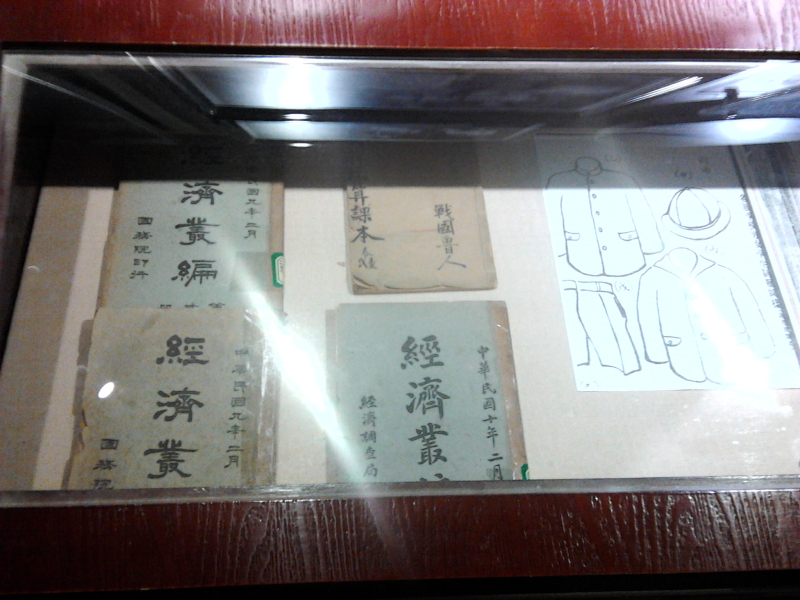 民國九年二月
濟叢編
國務院印
課本
戰國書人
中華民國九年二月
經濟叢
國務院
中華民國十年二月
經濟叢
經濟調查局